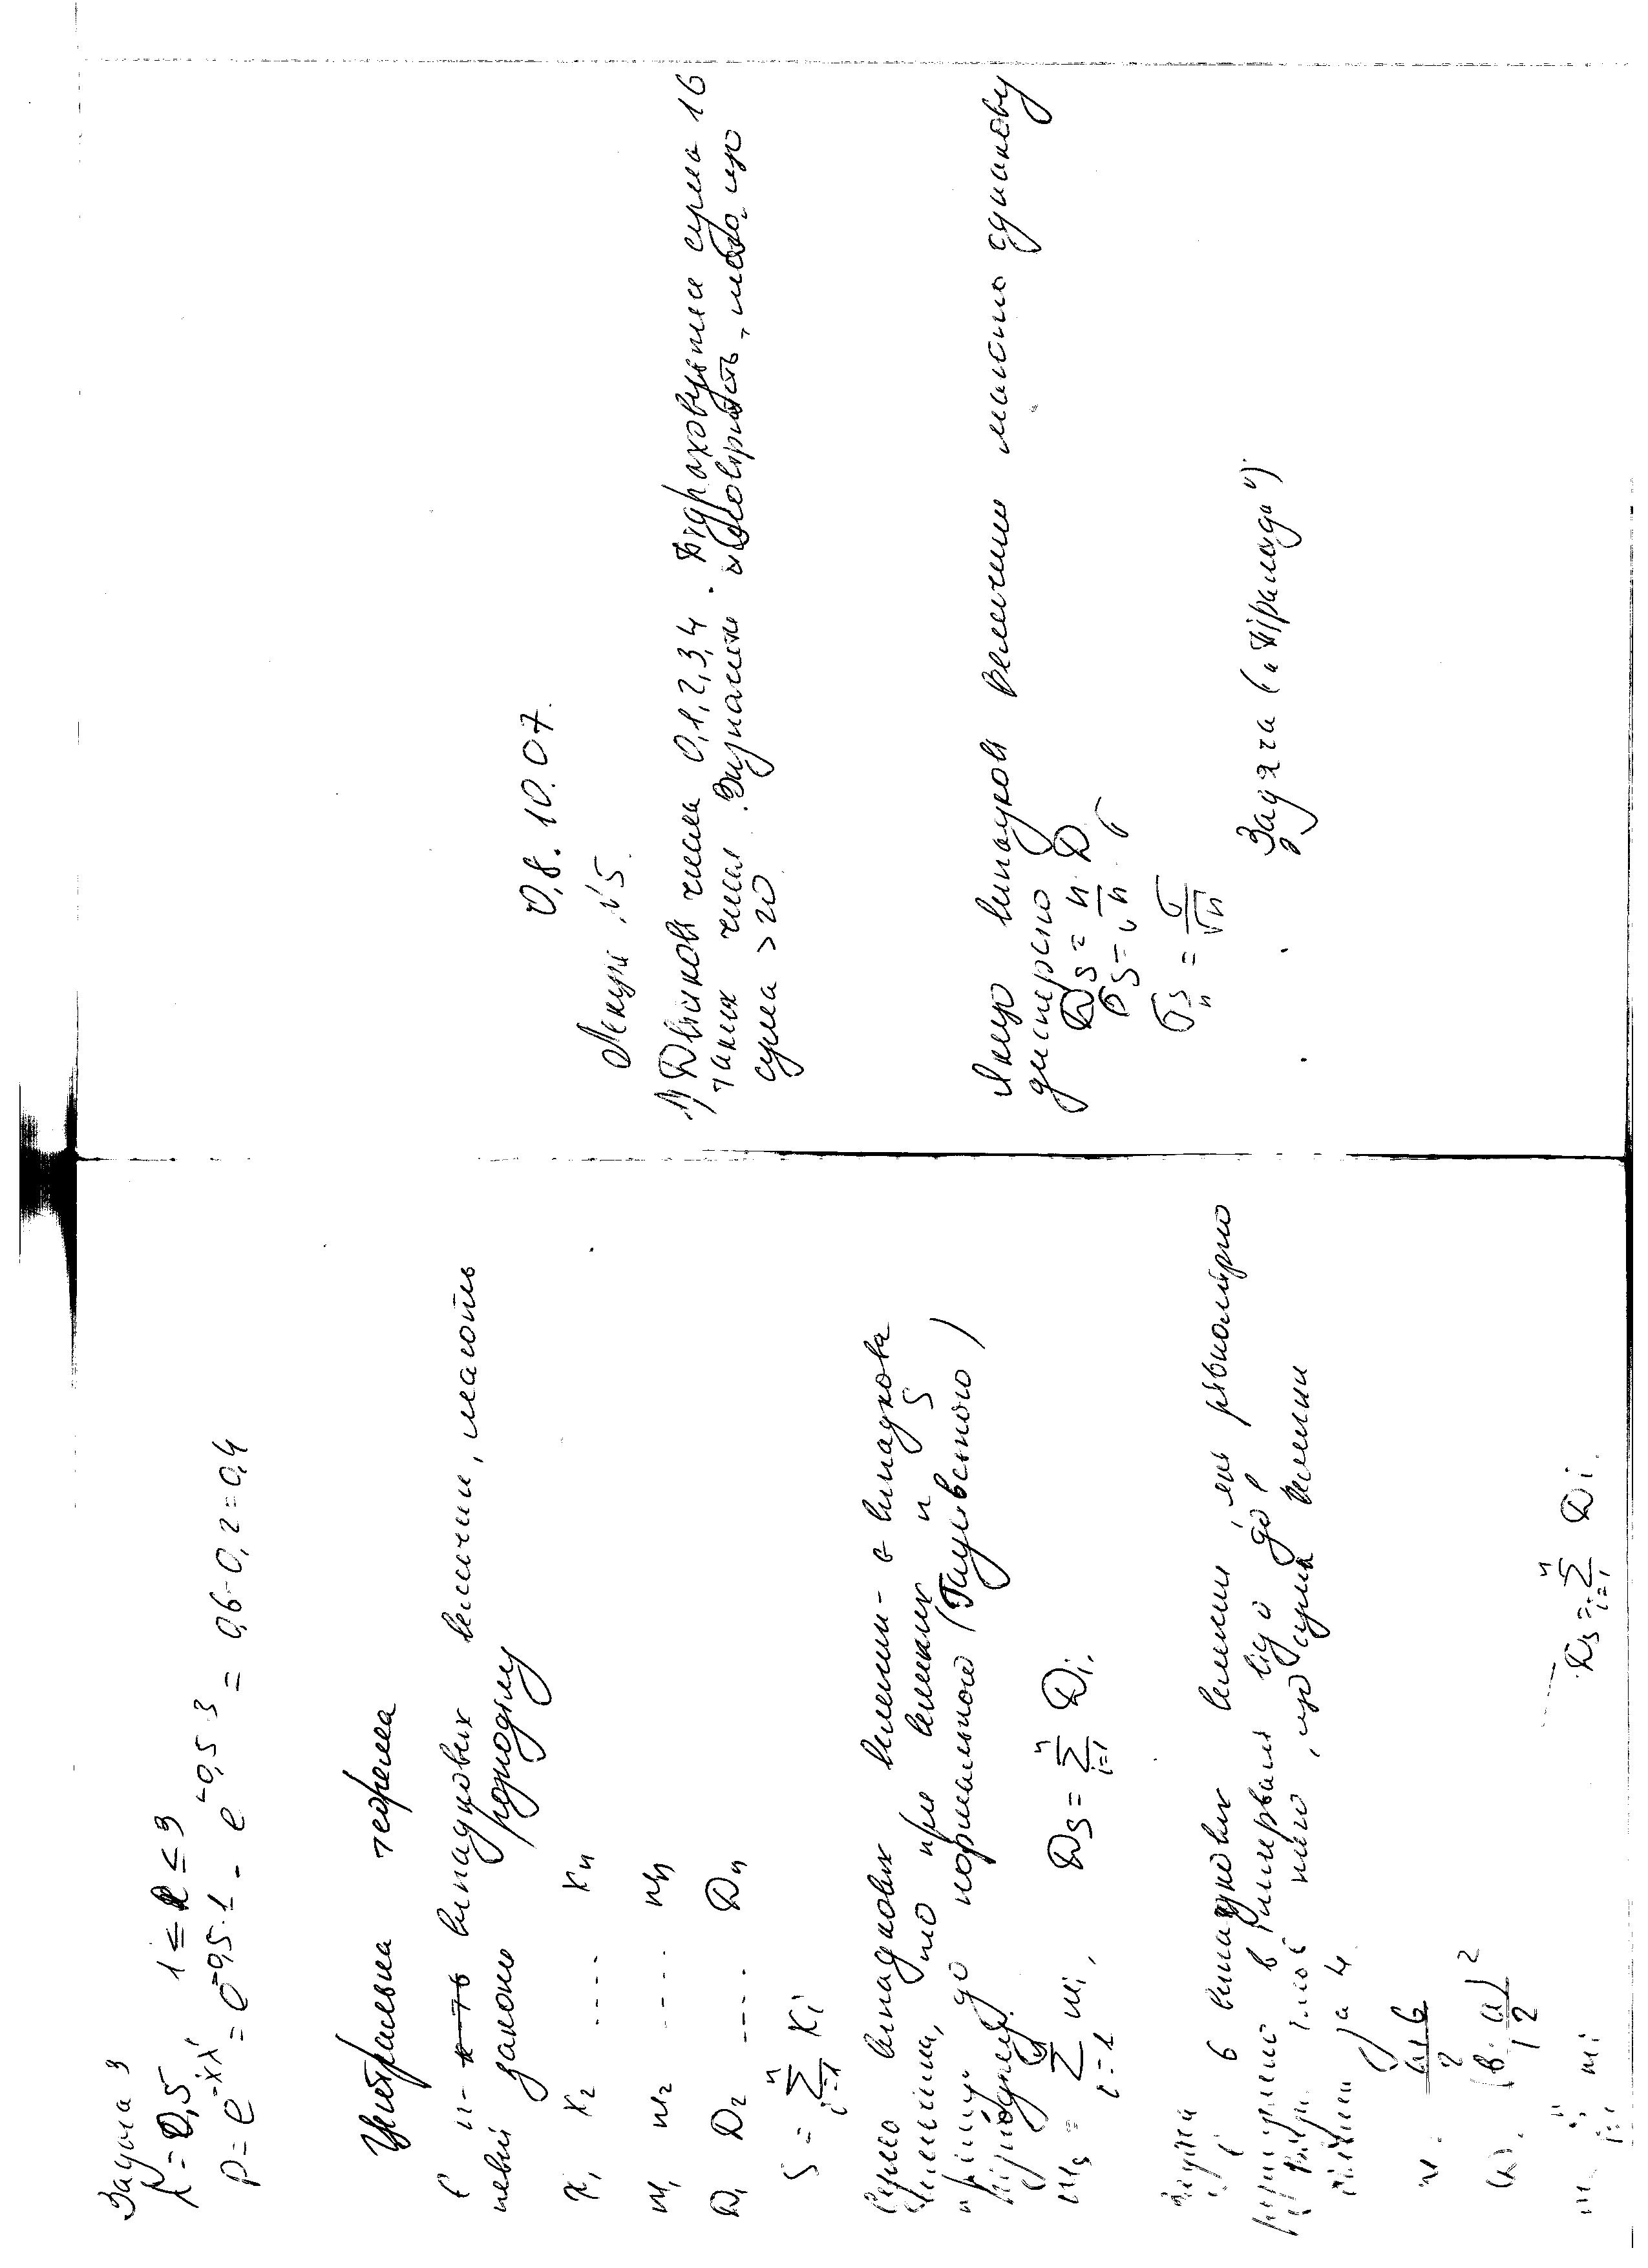 Задача 3
λ = 0,5, 1 ≤ R ≤ 3
P = e^{-xλ} = e^{-0,5·1} - e^{-0,5·3} = 0,6-0,2=0,4
Центральна теорема
Є n- к-ть випадкових величин, мають
певні закони розподілу
X₁ X₂ .... Xn
m₁ m₂ .... mn
D₁ D₂ .... Dn
S = Σ_{i=1}^{n} Xi
Сума випадкових величин - є випадкова
величина, то при великих n S
прямує до нормального (Гаусівського)
mₛ = Σ_{i=1}^{n} mi, Ds = Σ_{i=1}^{n} Di.
Задача
Є 6 випадкових величин, які рівномірно
розподілено в інтервалі від 0 до 1
того, що сума величин
більша за 4.
a+b / 2
(b-a)² / 12
m i=1 n mi Ds = Σ_{i=1}^{n} Di.
0,8.10.07.
Лекція №5.
1) Двійкові числа 0,1,2,3,4. Підраховується сума 16
таких чисел. Визначити ймовірність, того, що
сума >20
Якщо випадкові величини мають однакову
дисперсію
Ds = n·D
σs = √n · σ
σ_{s/n} = σ/√n
Задача („Піраміда")